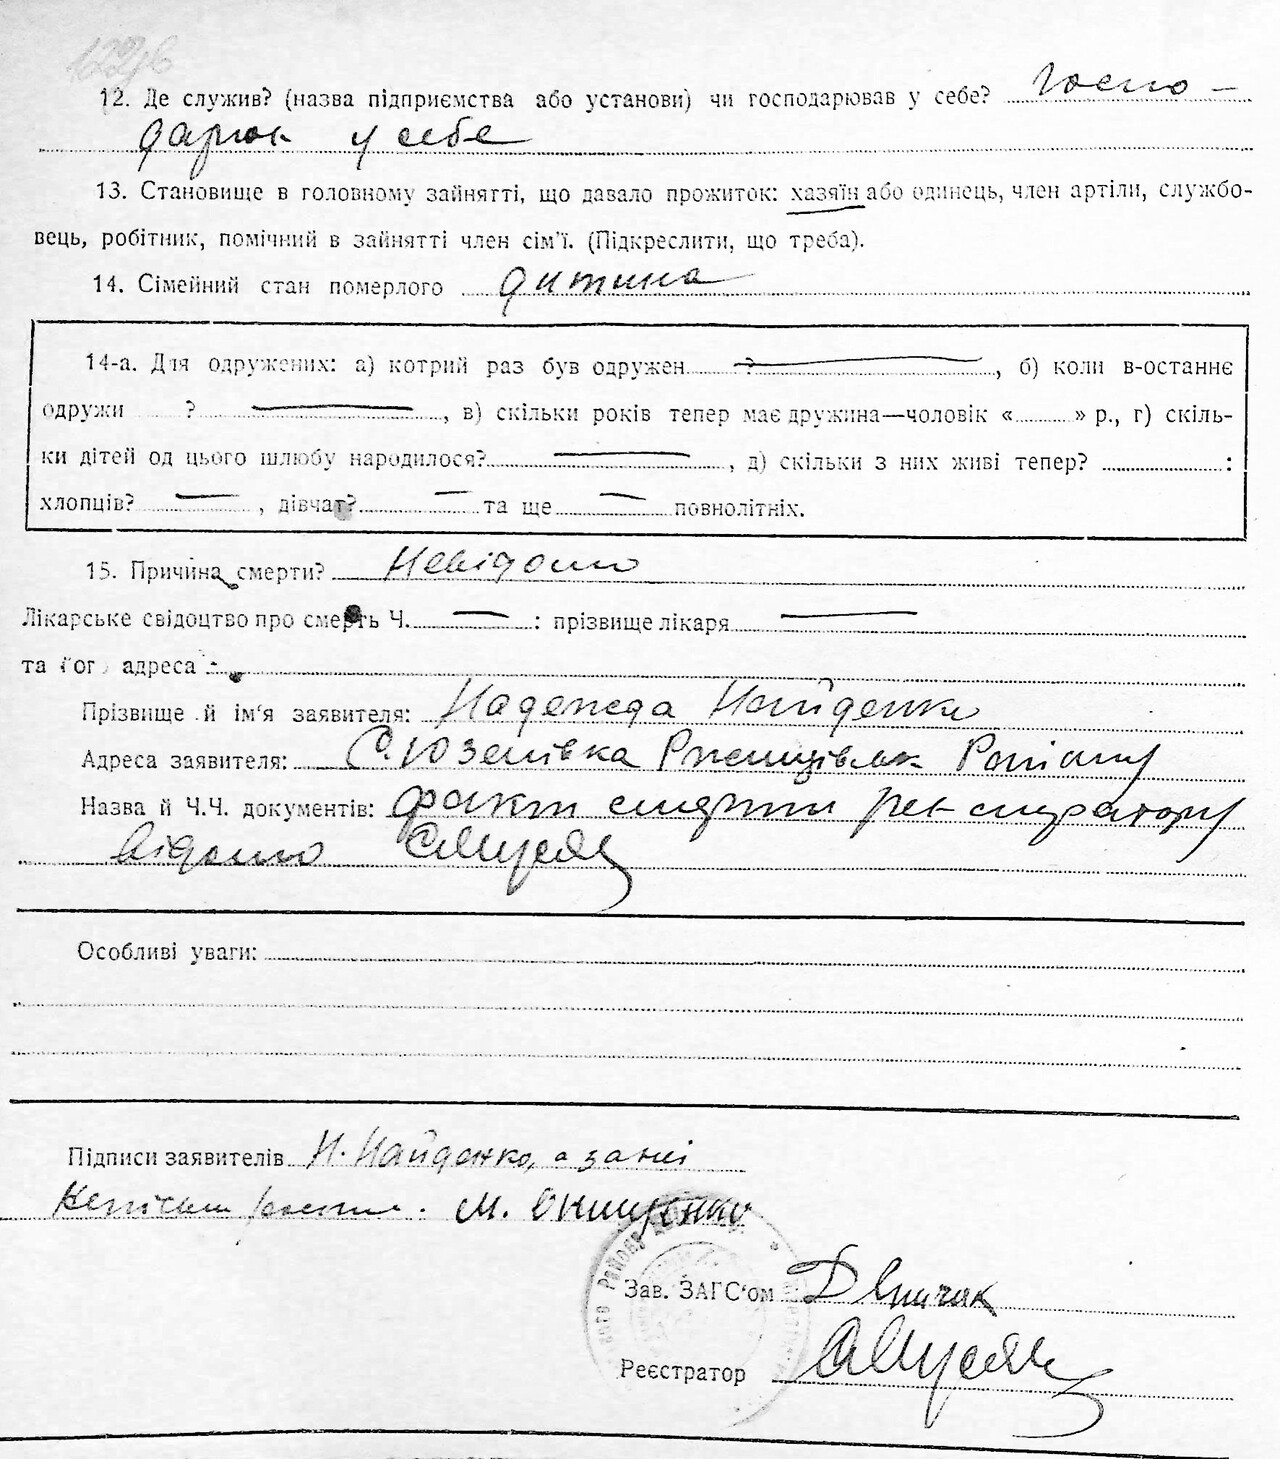 122зв
12. Де служив? (назва підприємства або установи) чи господарював у себе? Госпо-
дарюв у себе
13. Становище в головному зайнятті, що давало прожиток: хазяїн або одинець, член артіли, службо-
вець, робітник, помічний в зайнятті член сім'ї. (Підкреслити, що треба).
14. Сімейний стан померлого дитина
14-а. Для одружених: а) котрий раз був одружен ? , б) коли в-останнє
одружи ? , в) скільки років тепер має дружина—чоловік « » р., г) скіль-
ки дітей од цього шлюбу народилося? , д) скільки з них живі тепер? :
хлопців? , дівчат? та ще повнолітніх.
15. Причина смерти? Невідомо
Лікарське свідоцтво про смерть Ч. : прізвище лікаря
та його адреса
Прізвище й ім'я заявителя: Надежда Найденко
Адреса заявителя: С. Юзепівка Ржищівськ Району
Назва й Ч.Ч. документів: факт смерти реєстратору
відомо СМуся
Особливі уваги:
Підписи заявителів Н. Найденко, а за неї
М. Онищенко
Зав. ЗАГС'ом
Реєстратор